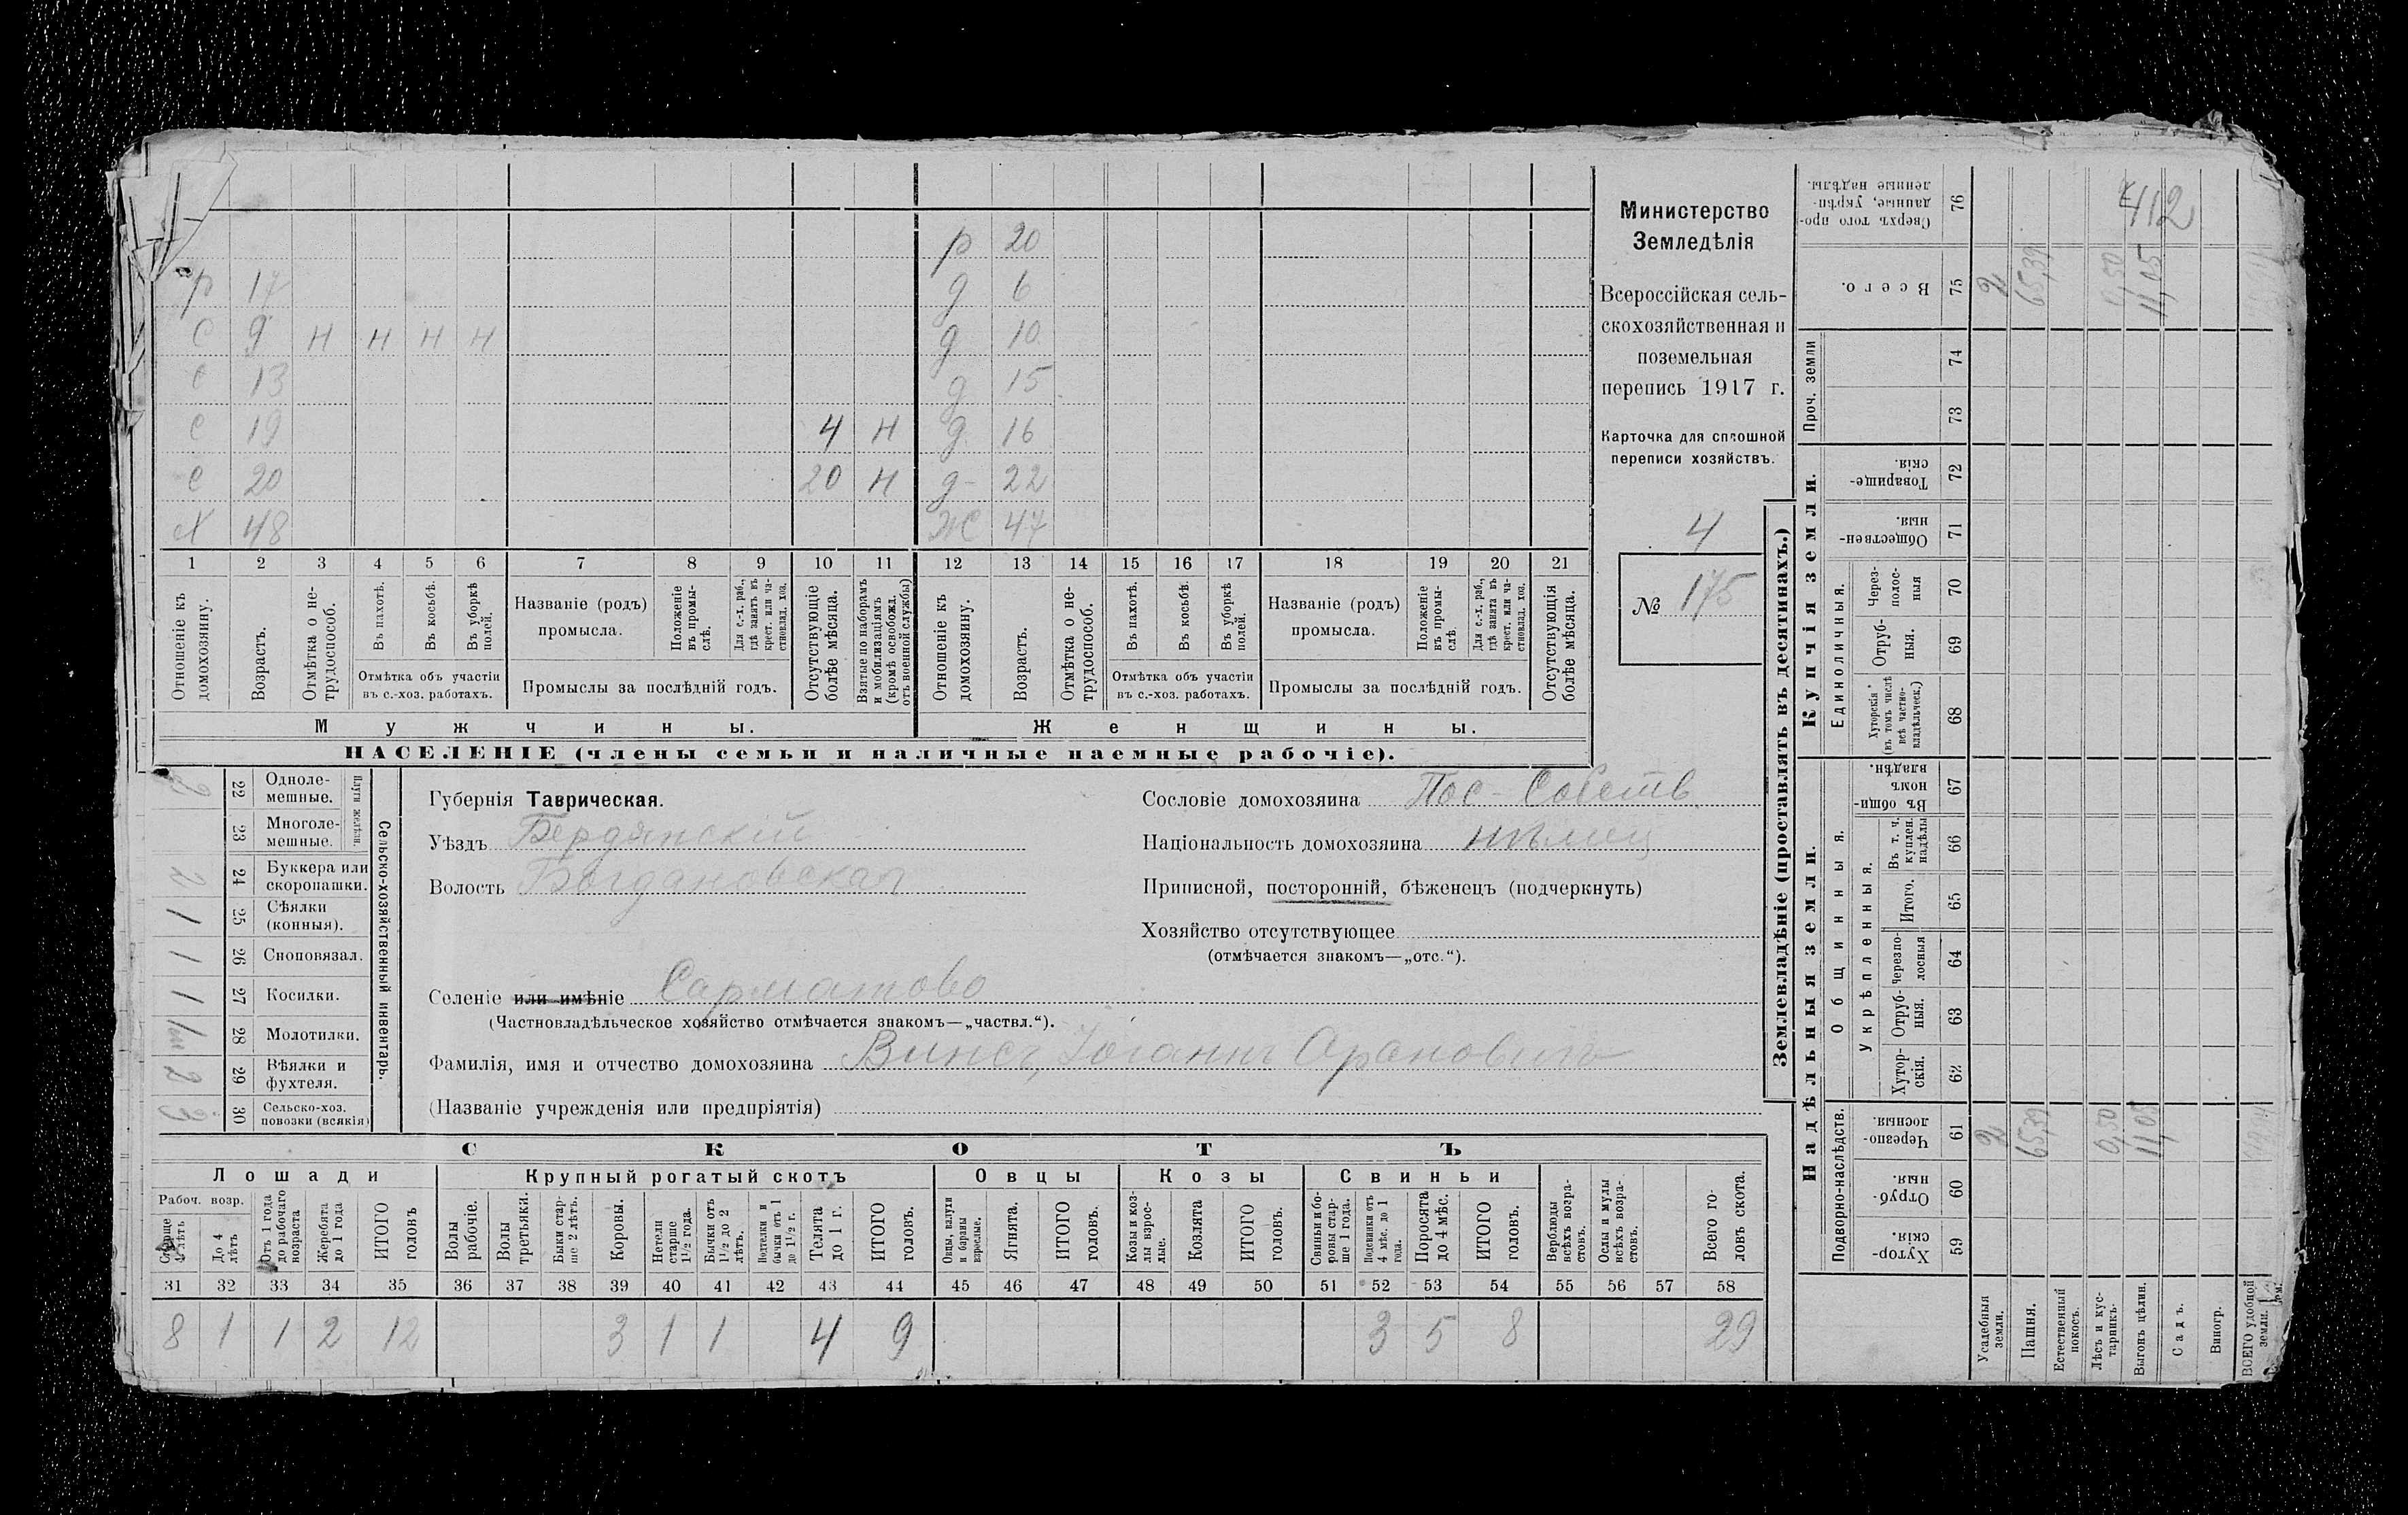 Министерство
Земледѣлія
Всероссійская сель-
скохозяйственная и
поземельная
перепись 1917 г.
Карточка для сплошной
переписи хозяйствъ.
4
№ 175
р 20
р 17 д 6
С 9 н н н н д 10
С 13 д 15
С 19 4 н д 16
С 20 20 н д 22
Х 48 Ж 47
1 2 3 4 5 6 7 8 9 10 11 12 13 14 15 16 17 18 19 20 21
Отношеніе къ домохозяину.
Возрастъ.
Отмѣтка о не-трудоспособ.
Въ пахотѣ.
Въ косьбѣ.
Въ уборкѣ полей.
Отмѣтка объ участіи
въ с.-хоз. работахъ.
Названіе (родъ)
промысла.
Положеніе въ промы-слѣ.
Для с.-х. раб., гдѣ занятъ въ крест. или ча-стновлад. хоз.
Промыслы за послѣдній годъ.
Отсутствующіе болѣе мѣсяца.
Взятые по наборамъ и мобилизаціямъ (кромѣ освобожд. отъ военной службы)
Отношеніе къ домохозяину.
Возрастъ.
Отмѣтка о не-трудоспособ.
Въ пахотѣ.
Въ косьбѣ.
Въ уборкѣ полей.
Отмѣтка объ участіи
въ с.-хоз. работахъ.
Названіе (родъ)
промысла.
Положеніе въ промы-слѣ.
Для с.-х. раб., гдѣ занята въ крест. или ча-стновлад. хоз.
Промыслы за послѣдній годъ.
Отсутствующія болѣе мѣсяца.
Мужчины.
Женщины.
НАСЕЛЕНІЕ (члены семьи и наличные наемные рабочіе).
Сельско-хозяйственный инвентарь.
22 Одноле-мешные.
23 Многоле-мешные.
2 24 Буккера или скоропашки.
1 25 Сѣялки (конныя).
1 26 Сноповязал.
1 27 Косилки.
28 Молотилки.
2 29 Вѣялки и фухтеля.
3 30 Сельско-хоз. повозки (всякія)
Губернія Таврическая.
Уѣздъ Бердянскій
Волость Богдановская
Сословіе домохозяина Пос-Собств.
Національность домохозяина нѣмец
Приписной, посторонній, бѣженецъ (подчеркнуть)
Хозяйство отсутствующее
(отмѣчается знакомъ—„отс.“).
Селеніе или имѣніе Сарматово
(Частновладѣльческое хозяйство отмѣчается знакомъ—„частвл.“).
Фамилія, имя и отчество домохозяина Винсъ, Іоганнъ
(Названіе учрежденія или предпріятія)
СКОТЪ
Лошади
Крупный рогатый скотъ
Овцы
Козы
Свиньи
Рабоч. возр.
Старше 4 лѣтъ
До 4 лѣтъ
Отъ 1 года до рабочаго возраста
Жеребята до 1 года
ИТОГО головъ
Волы рабочіе.
Волы третьяки.
Быки стар-ше 2 лѣтъ.
Коровы.
Нетели старше 1½ года.
Бычки отъ 1½ до 2 лѣтъ.
Подтелки и бычки отъ 1 до 1½ г.
Телята до 1 г.
ИТОГО головъ.
Овцы, валухи и бараны взрослые.
Ягнята.
ИТОГО головъ.
Козы и коз-лы взрос-лые.
Козлята
ИТОГО головъ.
Свиньи и бо-ровы стар-ше 1 года.
Подсвинки отъ 4 мѣс. до 1 года.
Поросята до 4 мѣс.
ИТОГО головъ.
Верблюды всѣхъ возра-стовъ.
Ослы и мулы всѣхъ возра-стовъ.
Всего го-ловъ скота.
31 32 33 34 35 36 37 38 39 40 41 42 43 44 45 46 47 48 49 50 51 52 53 54 55 56 57 58
8 1 1 2 12 3 1 1 4 9 3 5 8 29
Землевладѣніе (проставлять въ десятинахъ.)
Купчія земли.
Надѣльныя земли.
Сверхъ того про-данные, укрѣп-ленные надѣлы. 76
412
Всего. 75 2 65,39 0,50 11,05
Проч. земли
74
73
Товарище-скія. 72
Обществен-ныя. 71
Единоличныя.
Через-полос-ныя 70
Отруб-ныя. 69
Хуторскія (въ томъ числѣ всѣ частно-владѣльческ.) 68
Общинныя.
Въ общи-номъ владѣн. 67
Укрѣпленныя.
Въ т. ч. куплен. надѣлы 66
Итого. 65
Черезпо-лосныя 64
Отруб-ныя. 63
Хутор-скія. 62
Подворно-наслѣдств.
Черезпо-лосныя. 61 2 65,39 0,50 11,05
Отруб-ныя. 60
Хутор-скія. 59
Усадебныя земли.
Пашня.
Естественный покосъ.
Лѣсъ и кус-тарникъ.
Выгонъ цѣлин.
Садъ.
Виногр.
ВСЕГО удобной земли.